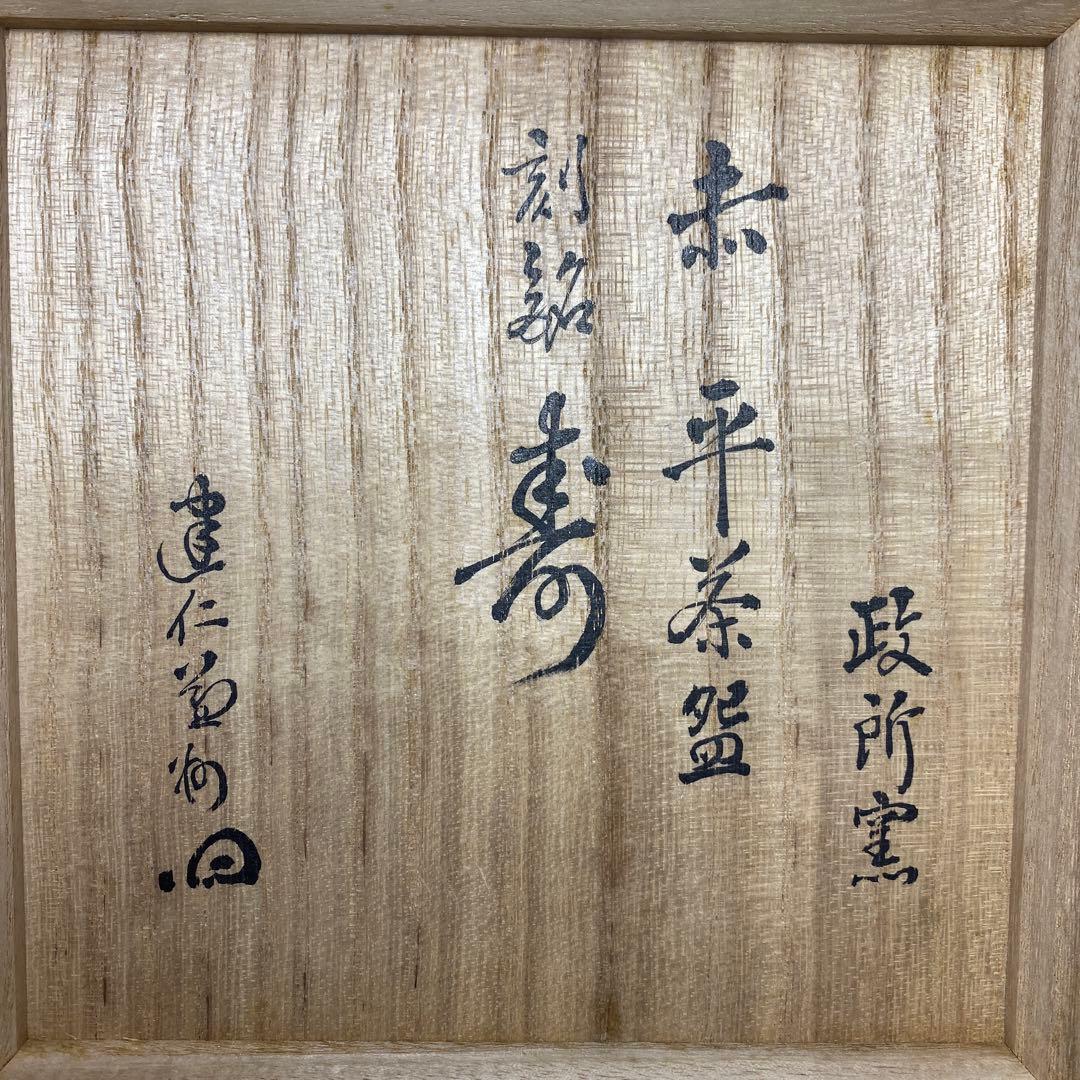 政所窯
赤平茶盌
刻銘 寿
建仁益州